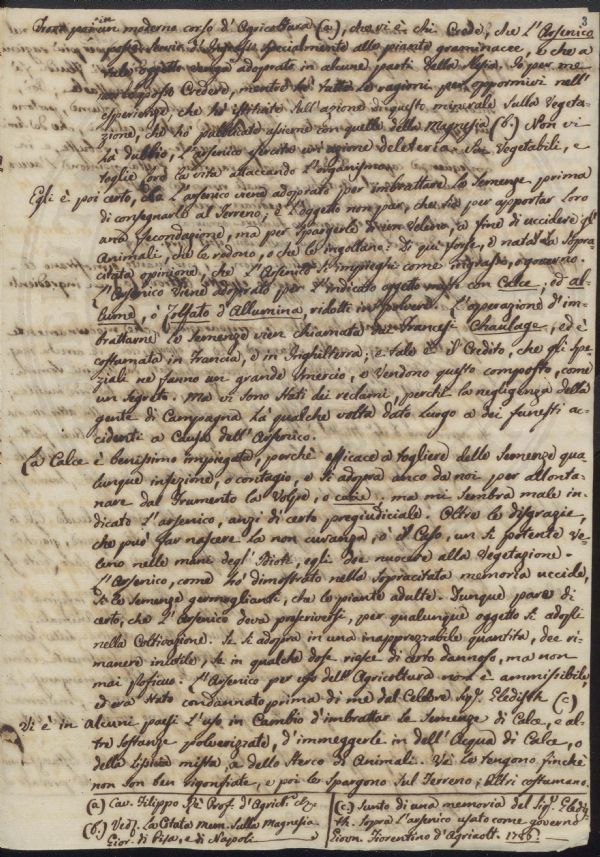 3
Trovo per in un moderno corso d'Agricoltura (a), che vi è chi Crede, che L'Arsenico
possa servir d' specialmente alle piante graminacee, e che a
tale oggetto venga adoperato in alcune parti della Io per me
non lo posso Credere, mentre hò tutte le ragioni per oppormivi nell'
esperienze, che hò istituite sull'azione di questo minerale sulla Vegeta-
zione, che hò pubblicate assieme con quelle della Magnesia (b.) Non vi
hà dubbio, L'arsenico esercita un'azione deleteria sui Vegetabili, e
toglie loro la vita attaccando L'organismo.
Egli è poi certo, che L'arsenico viene adoprato per imbrattare le Semenze prima
di consegnarle al Terreno; e L'oggetto non par, che sia per apportar Loro
una fecondazione, ma per spargerle di un Veleno, a fine di uccidere gl'
Animali, che le rodono, o che le ingollano: Di qui forse, è nata La Sopra-
citata opinione, che L'Arsenico s'impieghi come ingrasso, o governo.
L'Arsenico viene adoprato per L'indicato oggetto misto con Calce, ed al-
lume, o solfato d'Allumina, ridotti in polvere. L'operazione d'im-
brattarne le Semenze vien chiamata da' Francesi Chaulage, ed è
costumata in Francia, e in Inghilterra; e tale è il Credito, che gli Spe-
ziali ne fanno un grande Smercio, e Vendono questo composto, come
un Segreto. Ma vi sono stati dei reclami, perchè la negligenza della
gente di Campagna ha qualche volta dato Luogo a dei funesti ac-
cidenti a Causa dell'Arsenico.
La Calce è benissimo impiegata, perchè efficace a togliere dalle Semenze qua-
lunque infezione, o contagio, e si adopra anco da noi per allonta-
nare dal Frumento La Volpe, o carie.. ma mi Sembra male in-
dicato L'arsenico, anzi di certo pregiudiciale. Oltre le disgrazie,
che può far nascere la non curanza, o il Caso, un sì potente ve-
leno nelle mani degl' Idioti, egli dee nuocere alla Vegetazione.
L'Arsenico, come hò dimostrato nella Sopracitata memoria uccide,
sì le Semenze germoglianti, che le piante adulte. Dunque pare di
certo, che L'Arsenico deva proscriversi, per qualunque oggetto si adopri
nella Coltivazione. Se si adopra in una inapprezzabile quantità, dee ri-
manere inutile, se in qualche dose riesce di certo dannoso, ma non
mai proficuo. L'Arsenico per uso dell'Agricoltura non è ammissibile,
ed era stato condannato prima di me dal Celebre Sigr. Eledisth (c.)
Vi è in alcuni paesi L'uso in Cambio d'imbrattar le Semenze di Calce, e al-
tre sostanze polverizzate, d'immeggerle in dell'Acqua di Calce, o
della Lisciva mista a dello sterco di Animali. Vi le tengono finchè
non son ben rigonfiate, e poi le Spargono sul Terreno; Altri costumano
(a) Cav. Filippo Rè Prof. d'Agricolt. &c.
(b.) Ved. La Citata Mem. Sulla Magnesia
Gior. di Pisa, e di Napoli
(c.) Sunto di una memoria del Sigr. Eledis-
th. Sopra L'arsenico usato come governo
Giorn. Fiorentino d'Agricolt. 1786.